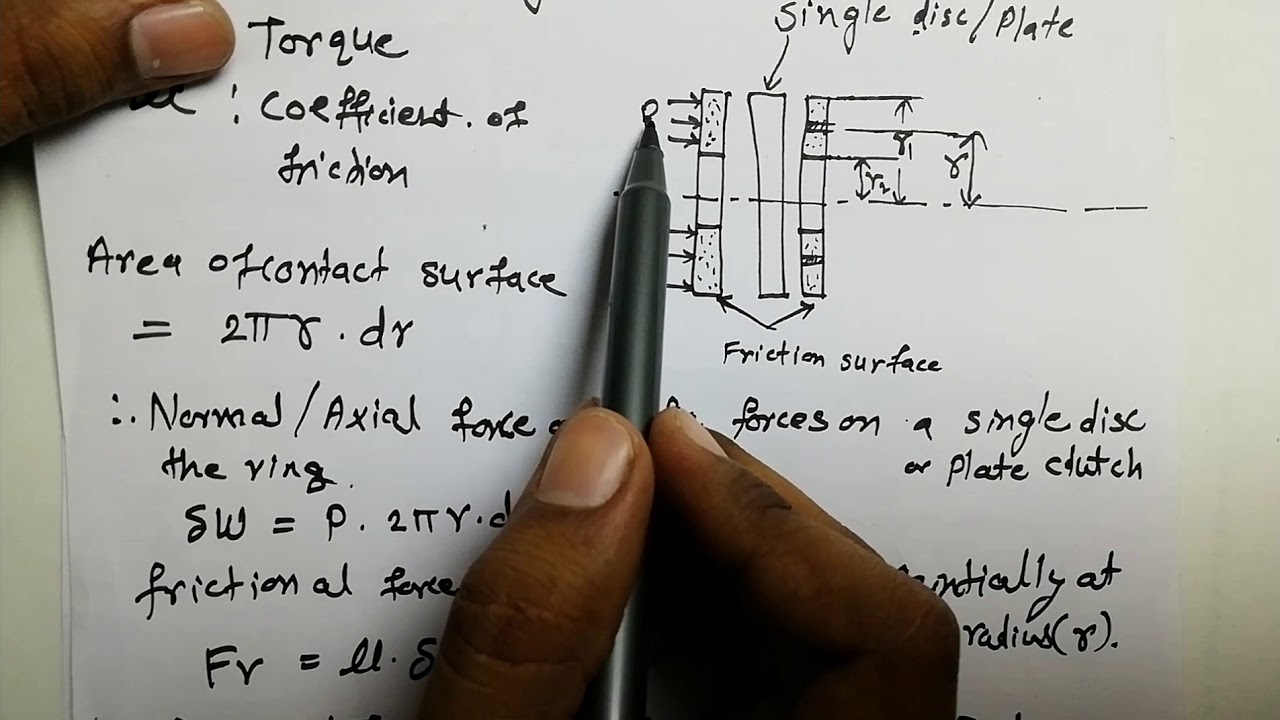 Single disc/Plate
Torque
: Coefficient. of
friction
P
r1
r2
r
Area of contact surface
= 2πr . dr
Friction surface
∴ Normal/Axial force
the ring.
forces on a single disc
or Plate clutch
δW = P. 2πr.d
frictional force
at
radius(r).
Fr = μ. δ